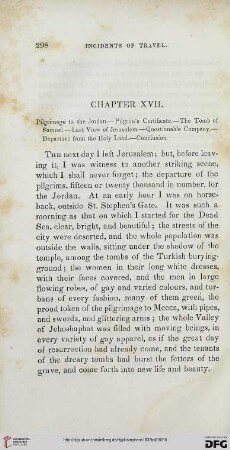 298 INCIDENTS OF TRAVEL.
CHAPTER XVII.
Pilgrimage to the Jordan.—Pilgrim's Certificate.—The Tomb of
Samuel.—Last View of Jerusalem.—Questionable Company.—
Departure from the Holy Land.—Conclusion.
THE next day I left Jerusalem; but, before leav-
ing it, I was witness to another striking scene,
which I shall never forget; the departure of the
pilgrims, fifteen or twenty thousand in number, for
the Jordan. At an early hour I was on horse-
back, outside St. Stephen's Gate. It was such a
morning as that on which I started for the Dead
Sea, clear, bright, and beautiful; the streets of the
city were deserted, and the whole population was
outside the walls, sitting under the shadow of the
temple, among the tombs of the Turkish burying-
ground; the women in their long white dresses,
with their faces covered, and the men in large
flowing robes, of gay and varied colours, and tur-
bans of every fashion, many of them green, the
proud token of the pilgrimage to Mecca, with pipes,
and swords, and glittering arms; the whole Valley
of Jehoshaphat was filled with moving beings, in
every variety of gay apparel, as if the great day
of resurrection had already come, and the tenants
of the dreary tombs had burst the fetters of the
grave, and come forth into new life and beauty.
DFG